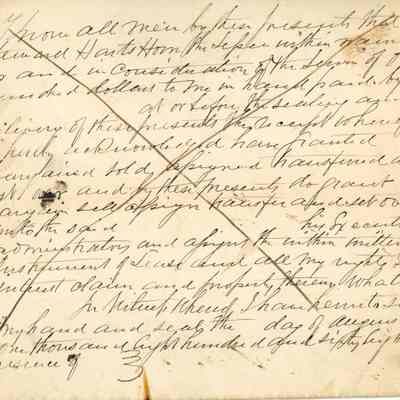 Know all men by these presents that
Edward Hartshorn the lessee within nam
and in consideration of the sum of
hundred dollars to me in hand paid by
at or before the sealing an
delivery of these presents the receipt whereof
hereby acknowledged have granted
bargained sold, assigned transferred a
and by these presents do grant
bargain sell assign transfer and set over
unto the said his Executo
administrators and assigns the within written
Instrument of Lease and all my right
interest claim and property therein What
In Witness Whereof I have hereunto se
my hand and seal the day of Augus
one thousand Eight hundred and sixty eight
presence of